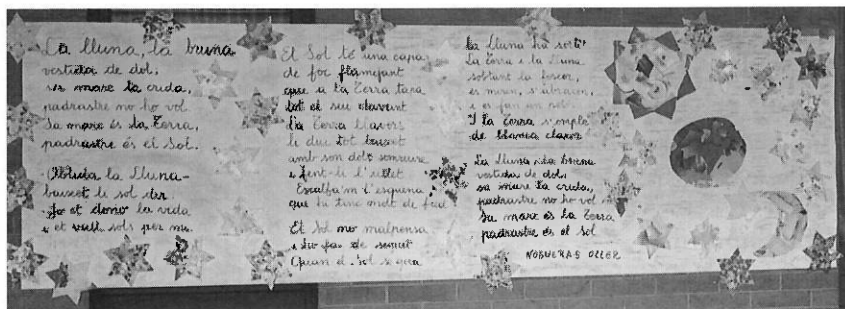 La lluna, la bruna
vestida de dol;
sa mare la crida,
padrastre no ho vol
Sa mare és la Terra,
padrastre és el Sol.
la Lluna-
baixet li sol dir
-Jo et dono la vida
i et vull sols per mi.
El Sol té una capa
de foc flamejant
que a la Terra tapa
tot el seu davant
La Terra llavors
li diu tot baixet
amb son dolç somriure
i fent-li l'ullet
Escalfa'm l'esquena
que hi tinc molt de fred
El Sol no malpensa
i ho fa de seguit
Quan el Sol se gira
la Lluna ha sortit
La Terra i la Lluna
sobtant la foscor,
es miren, s'abracen,
i es fan un petó.
I la Terra s'omple
de blanca claror
La Lluna, la bruna
vestida de dol,
sa mare la crida,
padrastre no ho vol
Sa mare és la Terra,
padrastre és el Sol
NOGUERAS OLLER